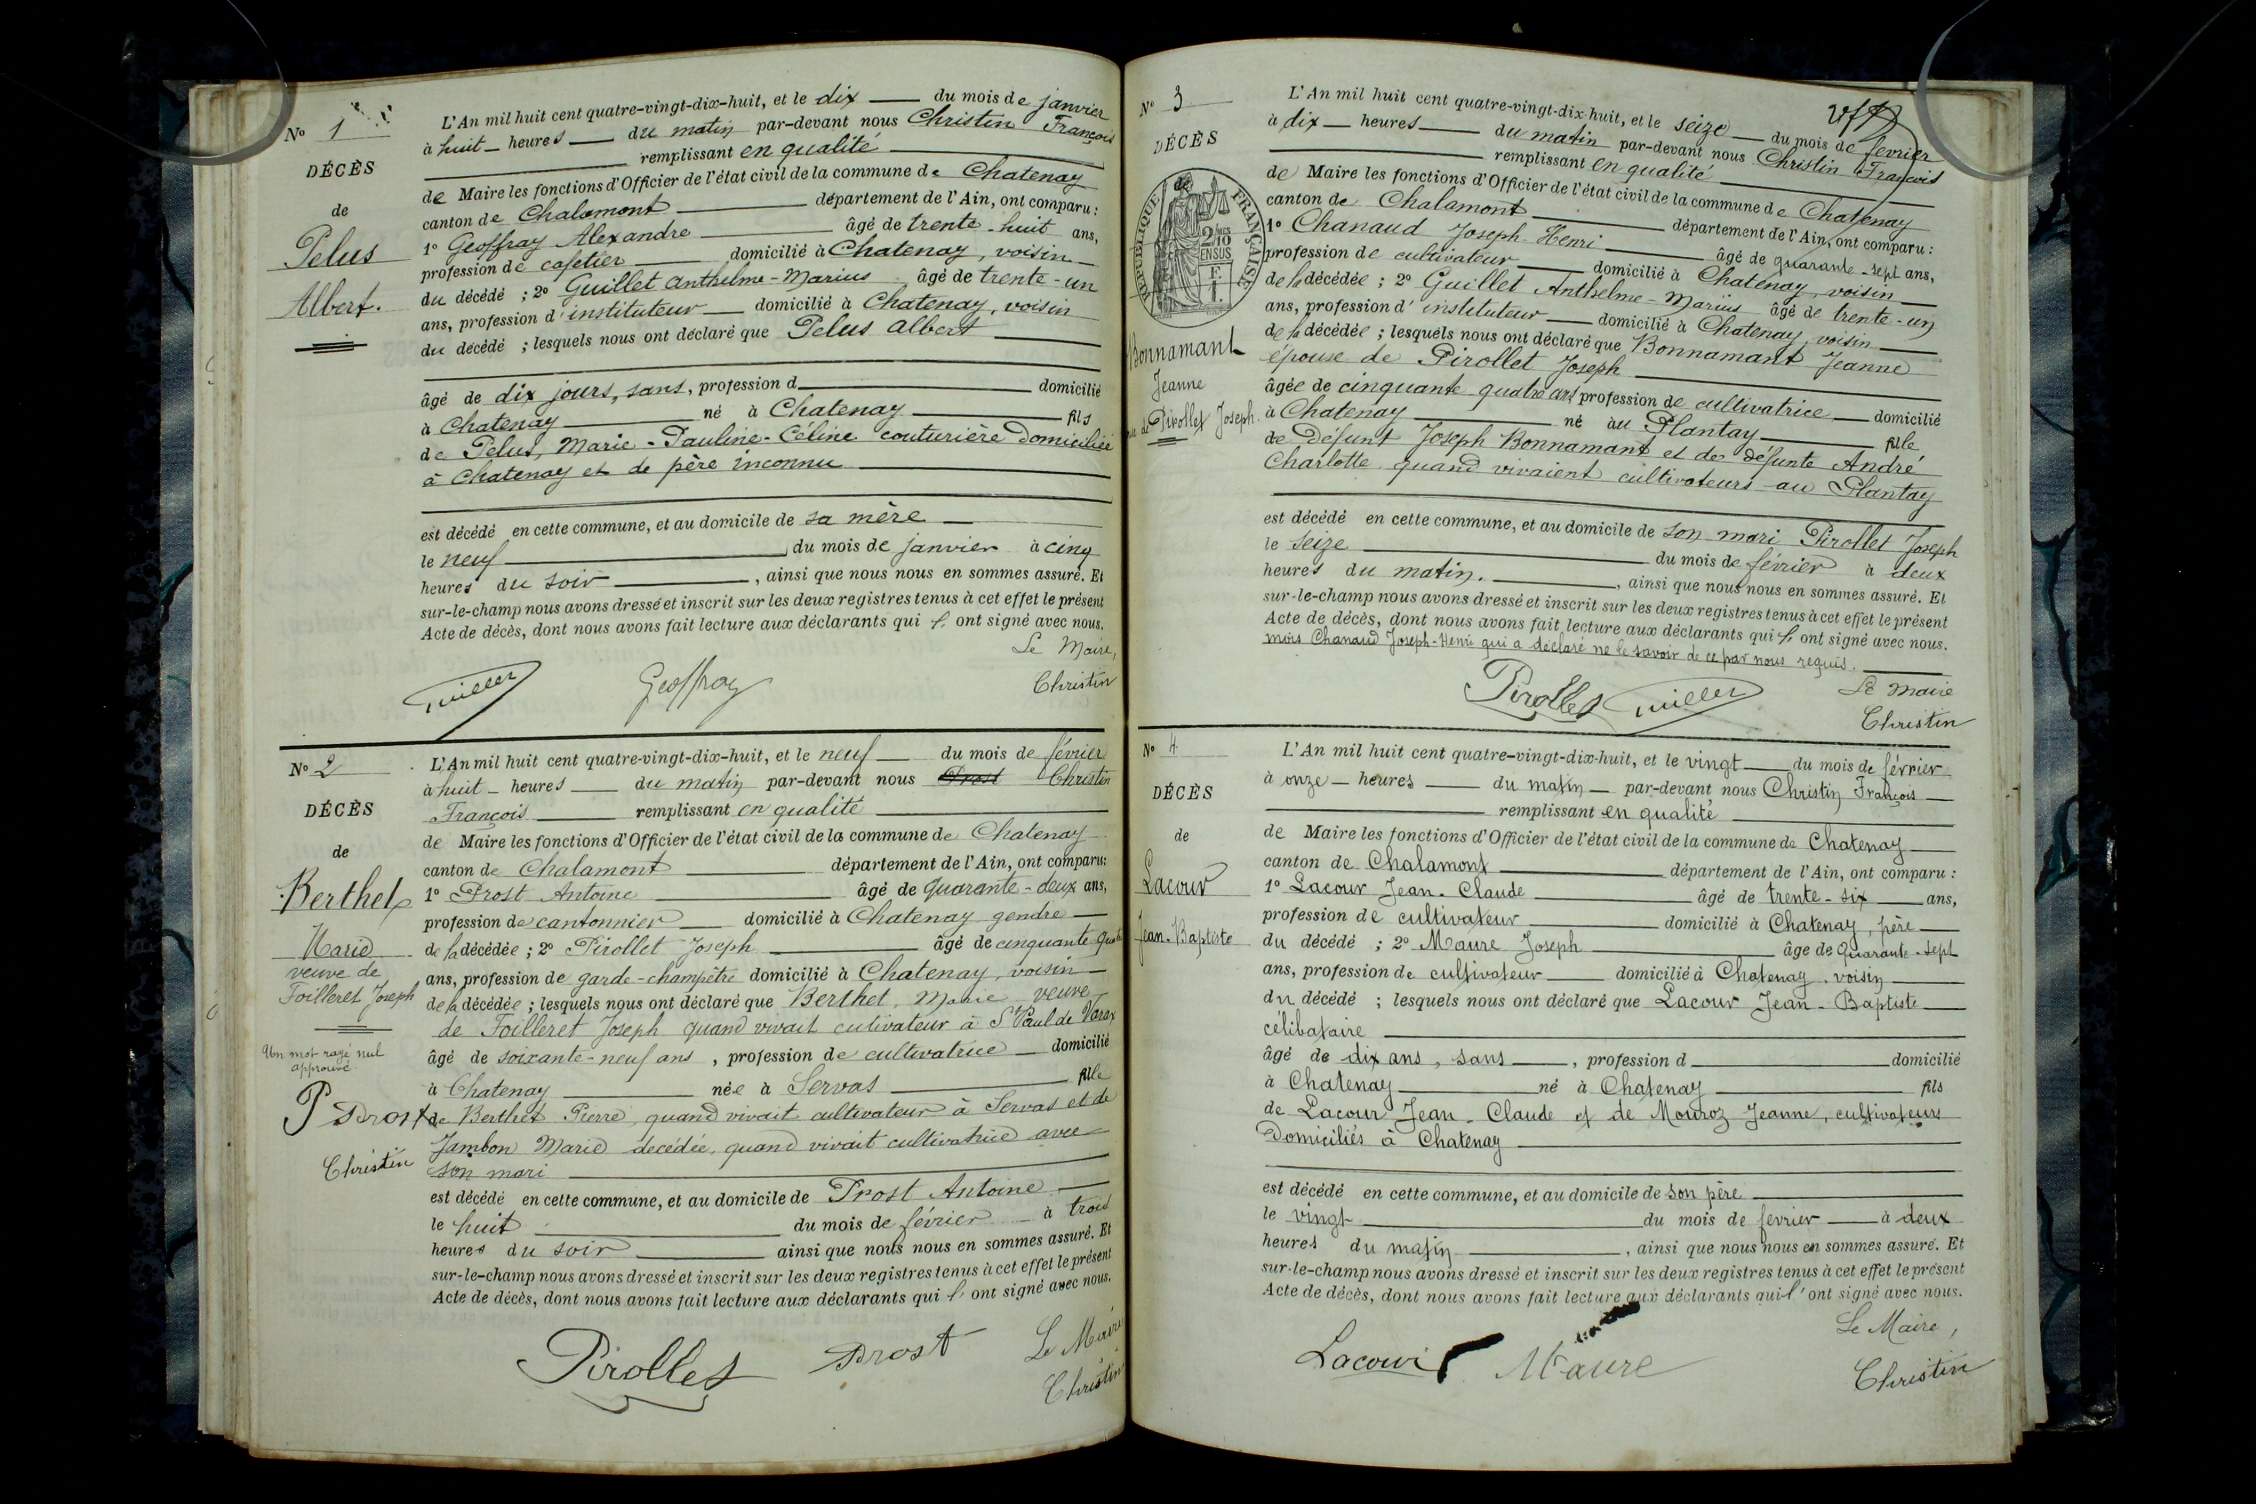 N° 1
DÉCÈS
de
Pelus
Albert.
L'An mil huit cent quatre-vingt-dix-huit, et le dix du mois de janvier
à huit heures du matin par-devant nous Christin François
remplissant en qualité
de Maire les fonctions d'Officier de l'état civil de la commune de Chatenay
canton de Chalamont département de l'Ain, ont comparu :
1° Geoffray Alexandre âgé de trente-huit ans,
profession de cafetier domicilié à Chatenay, voisin
du décédé ; 2° Guillet Anthelme-Marius âgé de trente-un
ans, profession d'instituteur domicilié à Chatenay, voisin
du décédé ; lesquels nous ont déclaré que Pelus Albert
âgé de dix jours, sans, profession d domicilié
à Chatenay né à Chatenay fils
de Pelus, Marie-Pauline-Céline couturière domiciliée
à Chatenay et de père inconnu
est décédé en cette commune, et au domicile de sa mère
le neuf du mois de janvier à cinq
heures du soir, ainsi que nous nous en sommes assuré. Et
sur-le-champ nous avons dressé et inscrit sur les deux registres tenus à cet effet le présent
Acte de décès, dont nous avons fait lecture aux déclarants qui l' ont signé avec nous.
Le Maire,
Guillet Geoffray Christin
N° 2
DÉCÈS
de
Berthet
Marie
veuve de
Foilleret Joseph
Un mot rayé nul
approuvé
P Prost
Christin
L'An mil huit cent quatre-vingt-dix-huit, et le neuf du mois de février
à huit heures du matin par-devant nous Prost Christin
François remplissant en qualité
de Maire les fonctions d'Officier de l'état civil de la commune de Chatenay
canton de Chalamont département de l'Ain, ont comparu:
1° Prost Antoine âgé de quarante-deux ans,
profession de cantonnier domicilié à Chatenay gendre
de la décédée ; 2° Pirollet Joseph âgé de cinquante quatre
ans, profession de garde-champêtre domicilié à Chatenay, voisin
de la décédée ; lesquels nous ont déclaré que Berthet Marie veuve
de Foilleret Joseph quand vivait cultivateur à St Paul de Varax
âgé de soixante-neuf ans, profession de cultivatrice domicilié
à Chatenay née à Servas fille
de Berthet Pierre, quand vivait cultivateur à Servas et de
Jambon Marie décédée, quand vivait cultivatrice avec
son mari
est décédé en cette commune, et au domicile de Prost Antoine
le huit du mois de février à trois
heures du soir ainsi que nous nous en sommes assuré. Et
sur-le-champ nous avons dressé et inscrit sur les deux registres tenus à cet effet le présent
Acte de décès, dont nous avons fait lecture aux déclarants qui l' ont signé avec nous.
Le Maire
Pirollet Prost Christin
N° 3
DÉCÈS
de
RÉPUBLIQUE FRANÇAISE
2/10 EN SUS
Bonnamant
Jeanne
de Pirollet Joseph
L'An mil huit cent quatre-vingt-dix-huit, et le seize du mois de fevrier
à dix heures du matin par-devant nous Christin François
remplissant en qualité
de Maire les fonctions d'Officier de l'état civil de la commune de Chatenay
canton de Chalamont département de l'Ain, ont comparu :
1° Chanaud Joseph Henri âgé de quarante-sept ans,
profession de cultivateur domicilié à Chatenay, voisin
de la décédée ; 2° Guillet Anthelme-Marius âgé de trente-un
ans, profession d'instituteur domicilié à Chatenay, voisin
de la décédée ; lesquels nous ont déclaré que Bonnamant Jeanne
épouse de Pirollet Joseph
âgée de cinquante quatre ans profession de cultivatrice domicilié
à Chatenay né au Plantay fille
de Défunt Joseph Bonnamant et de défunte André
Charlotte quand vivaient cultivateurs au Plantay
est décédé en cette commune, et au domicile de son mari Pirollet Joseph
le seize du mois de février à deux
heures du matin., ainsi que nous nous en sommes assuré. Et
sur-le-champ nous avons dressé et inscrit sur les deux registres tenus à cet effet le présent
Acte de décès, dont nous avons fait lecture aux déclarants qui l' ont signé avec nous.
mois Chanaud Joseph-Henri qui a déclaré ne le savoir de ce par nous requis.
Le Maire
Pirollet Guillet Christin
N° 4
DÉCÈS
de
Lacour
Jean-Baptiste
L'An mil huit cent quatre-vingt-dix-huit, et le vingt du mois de février
à onze heures du matin par-devant nous Christin François
remplissant en qualité
de Maire les fonctions d'Officier de l'état civil de la commune de Chatenay
canton de Chalamont département de l'Ain, ont comparu :
1° Lacour Jean-Claude âgé de trente-six ans,
profession de cultivateur domicilié à Chatenay, père
du décédé ; 2° Maure Joseph âgé de quarante-sept
ans, profession de cultivateur domicilié à Chatenay, voisin
du décédé ; lesquels nous ont déclaré que Lacour Jean-Baptiste
célibataire
âgé de dix ans, sans, profession d domicilié
à Chatenay né à Chatenay fils
de Lacour Jean-Claude et de Mouroz Jeanne, cultivateurs
Domiciliés à Chatenay
est décédé en cette commune, et au domicile de son père
le vingt du mois de fevrier à deux
heures du matin, ainsi que nous nous en sommes assuré. Et
sur-le-champ nous avons dressé et inscrit sur les deux registres tenus à cet effet le présent
Acte de décès, dont nous avons fait lecture aux déclarants qui l' ont signé avec nous.
Le Maire,
Lacour Maure Christin